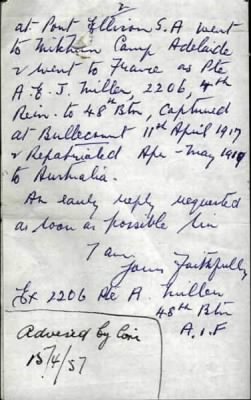 2
at Port Ellison S.A went
to Mitcham Camp Adelaide
& went to France as Pte
A. E. J. Miller, 2206, 4th
Rein. to 48th Btn, Captured
at Bullecourt 11th April 1917
& Repatriated Apr - May 1919
to Australia.
An early reply requested
as soon as possible Sir
I am
Yours Faithfully
Ex 2206 Pte A. Miller
48th Btn
A.I.F
Advised by
15/4/57